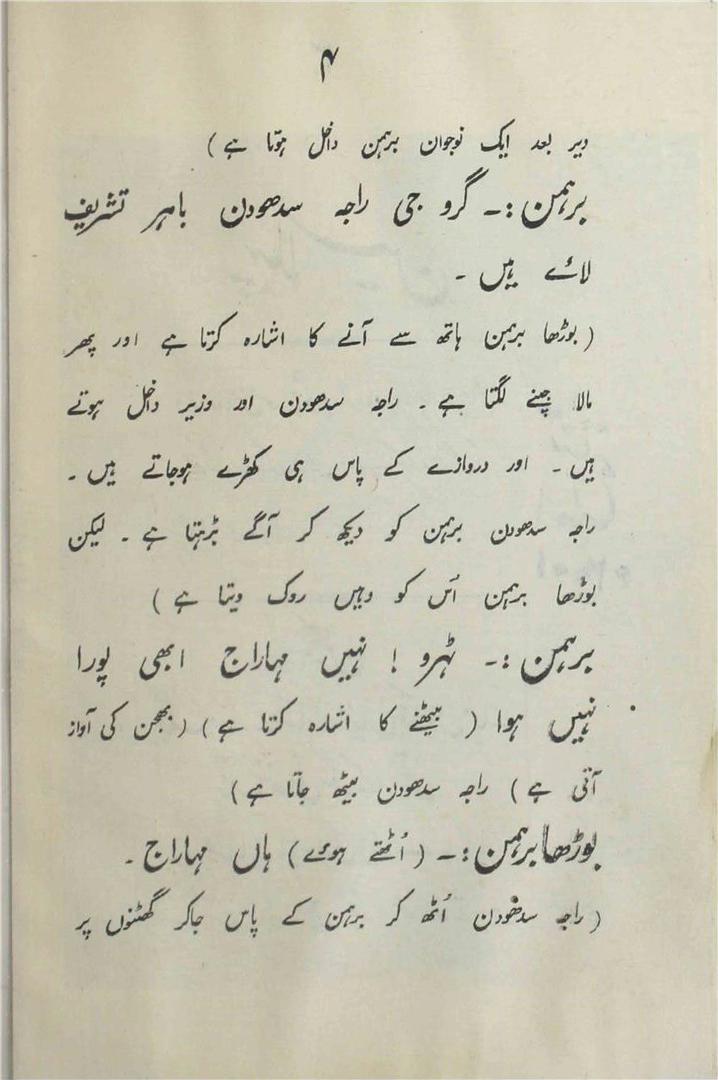 ۴
دیر بعد ایک نوجوان برہمن داخل ہوتا ہے)
برہمن :۔ گرو جی راجہ سدھودن باہر تشریف
لائے ہیں ۔
(بوڑھا برہمن ہاتھ سے آنے کا اشارہ کرتا ہے اور پھر
مالا جپنے لگتا ہے ۔ راجہ سدھودن اور وزیر داخل ہوتے
ہیں ۔ اور دروازے کے پاس ہی کھڑے ہوجاتے ہیں ۔
راجہ سدھودن برہمن کو دیکھ کر آگے بڑہتا ہے ۔ لیکن
بوڑھا برہمن اُس کو وہیں روک دیتا ہے )
برہمن :۔ ٹہرو ! نہیں مہاراج ابھی پورا
نہیں ہوا ( بیٹھنے کا اشارہ کرتا ہے ) ( بھجن کی آواز
آتی ہے ) راجہ سدھودن بیٹھ جاتا ہے )
بوڑھا برہمن :۔ ( اُٹھتے ہوئے ) ہاں مہاراج ۔
( راجہ سدھودن اُٹھ کر برہمن کے پاس جاکر گھٹنوں پر